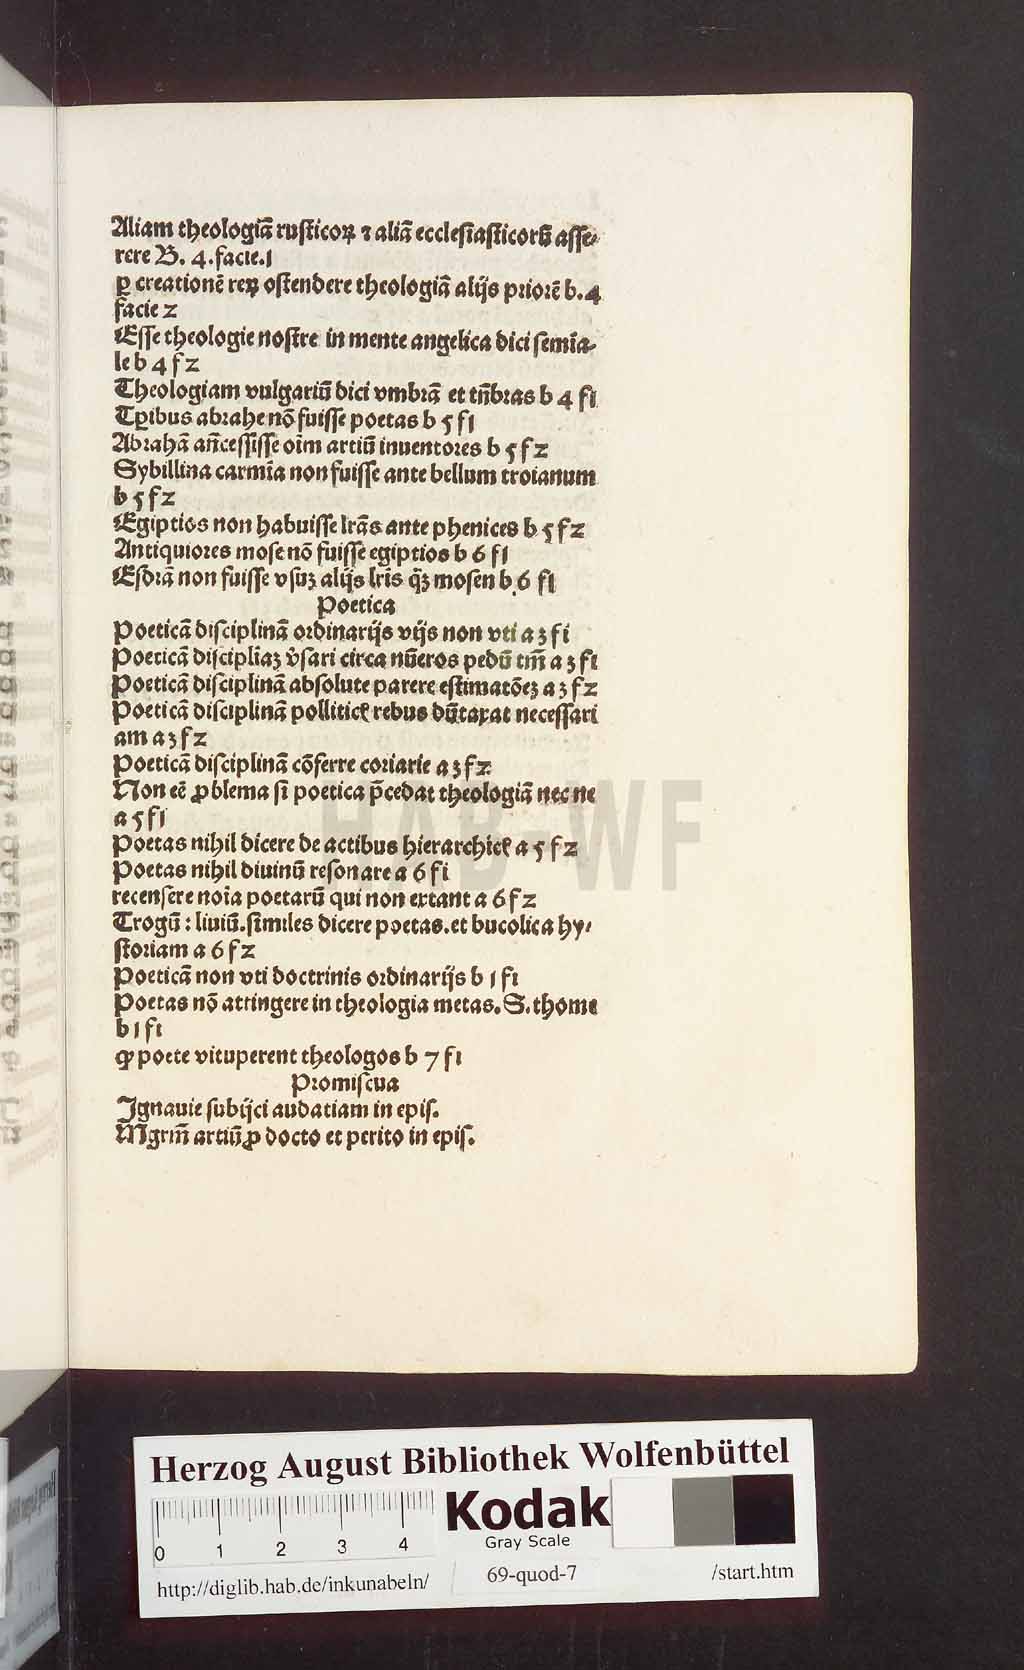 Aliam theologiā rusticoꝝ ⁊ aliā ecclesiasticorū asse⸗
rere B. 4. facie. 1
ꝑ creationē reꝝ ostendere theologiā alijs priorē b. 4
facie 2
Esse theologie nostre in mente angelica dici semīa⸗
le b 4 f 2
Theologiam vulgariū dici vmbrā et tn̄bras b 4 f1
Tꝑibus abrahe nō fuisse poetas b 5 f1
Abrahā an̄cessisse oīm artiū inuentores b 5 f 2
Sybillina carmīa non fuisse ante bellum troianum
b 5 f 2
Egiptios non habuisse lrās ante phenices b 5 f 2
Antiquiores mose nō fuisse egiptios b 6 f1
Esdrā non fuisse vsuꝫ alijs lrīs q̄ꝫ mosen b 6 f1
Poetica
Poeticā disciplinā ordinarijs vijs non vti a 3 f i
Poeticā disciplīaꝫ v̓sari circa nūeros pedū tm̄ a 3 f1
Poeticā disciplinā absolute parere estimatōeꝫ a 3 f 2
Poeticā disciplinā polliticꝭ rebus dūtaxat necessari
am a 3 f 2
Poeticā disciplinā cōferre coriarie a 3 f 2
Non eē ꝓblema si poetica p̄cedat theologiā nec ne
a 5 f1
Poetas nihil dicere de actibus hierarchicꝭ a 5 f 2
Poetas nihil diuinū resonare a 6 f i
recensere noīa poetarū qui non extant a 6 f 2
Trogū : liuiū. similes dicere poetas. et bucolica hy⸗
storiam a 6 f 2
Poeticā non vti doctrinis ordinarijs b 1 f1
Poetas nō attingere in theologia metas. S. thome
b 1 f1
ꝙ poete vituperent theologos b 7 f1
Promiscua
Ignauie subijci audatiam in epis.
Mgrm̄ artiū ꝓ docto et perito in epis.
HAB-WF
Herzog August Bibliothek Wolfenbüttel
Kodak
Gray Scale
0 1 2 3 4
http://diglib.hab.de/inkunabeln/ 69-quod-7 /start.htm